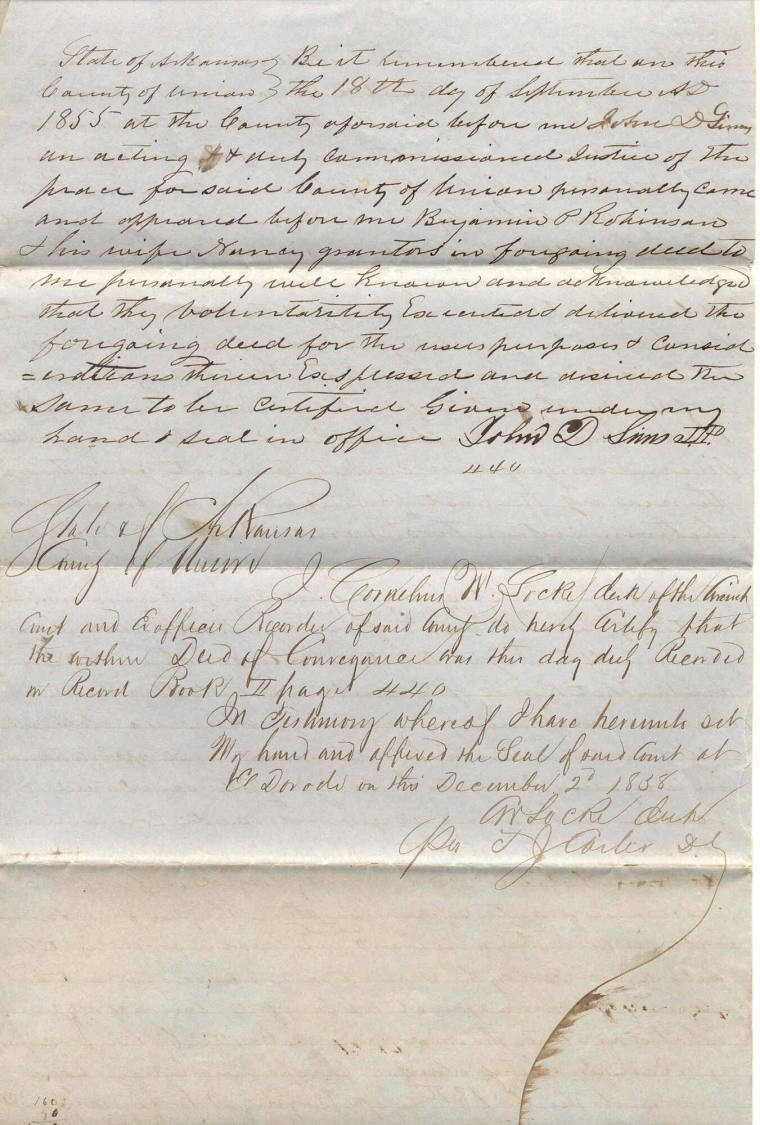 State of Arkansas } Be it remembered that on this
County of Union } the 18th day of September AD
1855 at the County aforsaid before me John D Sims
an acting & duly Commissioned Justice of the
peace for said County of Union personally came
and appeared before me Benjamin P Robinson
& his wife Nancy grantors in foregoing deed to
me personally well Known and acknowledged
that they voluntaritily Executed & delivered the
foregoing deed for the uses purposes & Consid
=erations therein Exspressed and desired the
same to be Certified Given under my
hand & seal in office John D Sims JP
440
State of Arkansas
County of Union
I Cornelius W. Locke clerk of the Circuit
Court and Exofficio Recorder of said County do herely Certify that
the within Deed of Conveyance was this day duly Recorded
in Record Book II page 440
In Testimony whereof I have hereunto set
My hand and affixed the Seal of said Court at
El Dorado on this December 2d 1858
CW Locke Clerk
Per T J Carter D.C
160
40